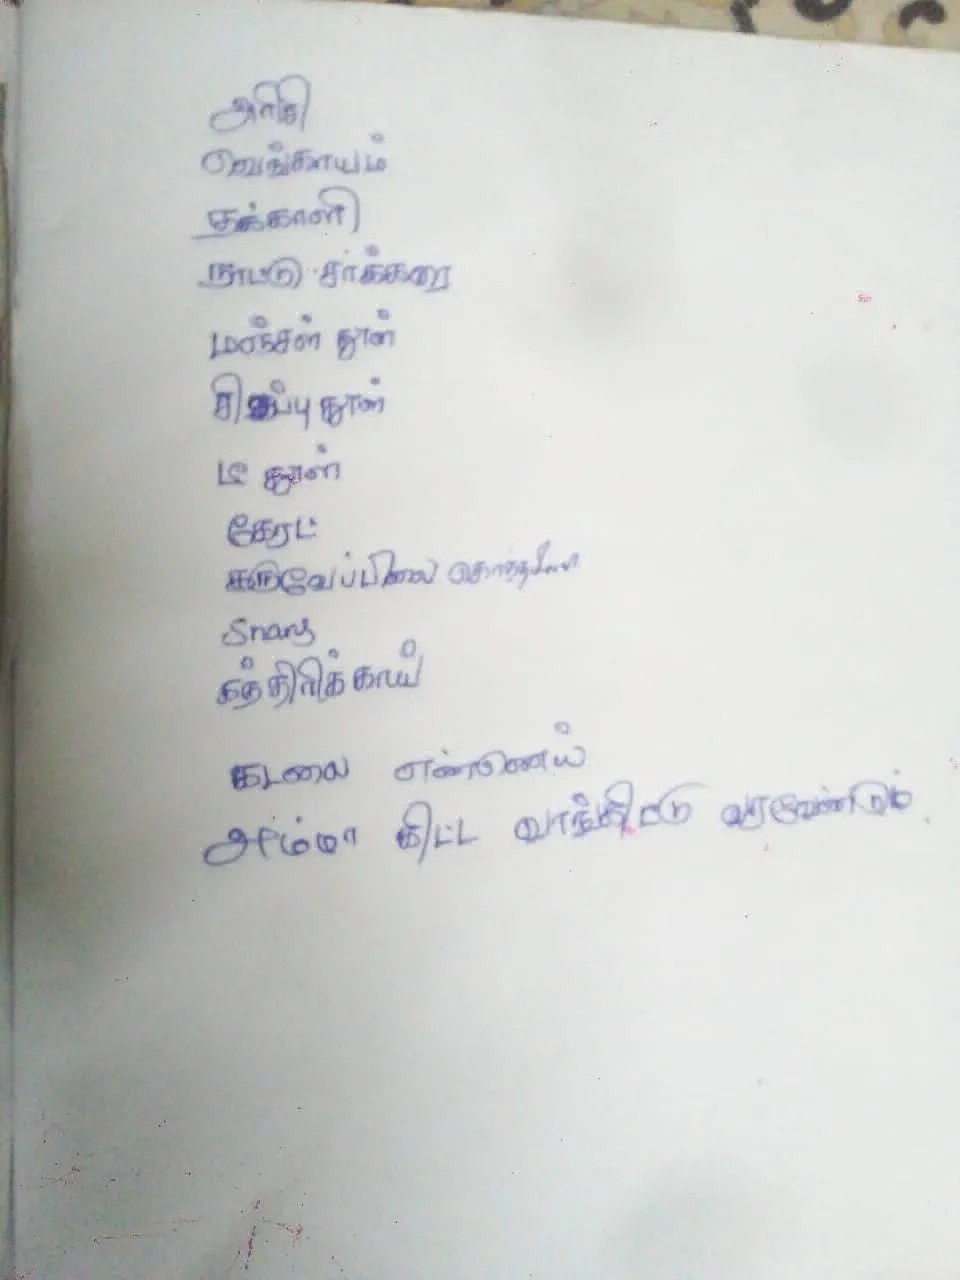 அரிசி
வெங்காயம்
தக்காளி
நாட்டு சர்க்கரை
மஞ்சள் தூள்
சிகப்பு தூள்
டீ தூள்
கேரட்
கருவேப்பிலை
கத்திரிக்காய்
கடலை எண்ணெய்
அம்மா கிட்ட வாங்கிட்டு வரவேண்டும்.